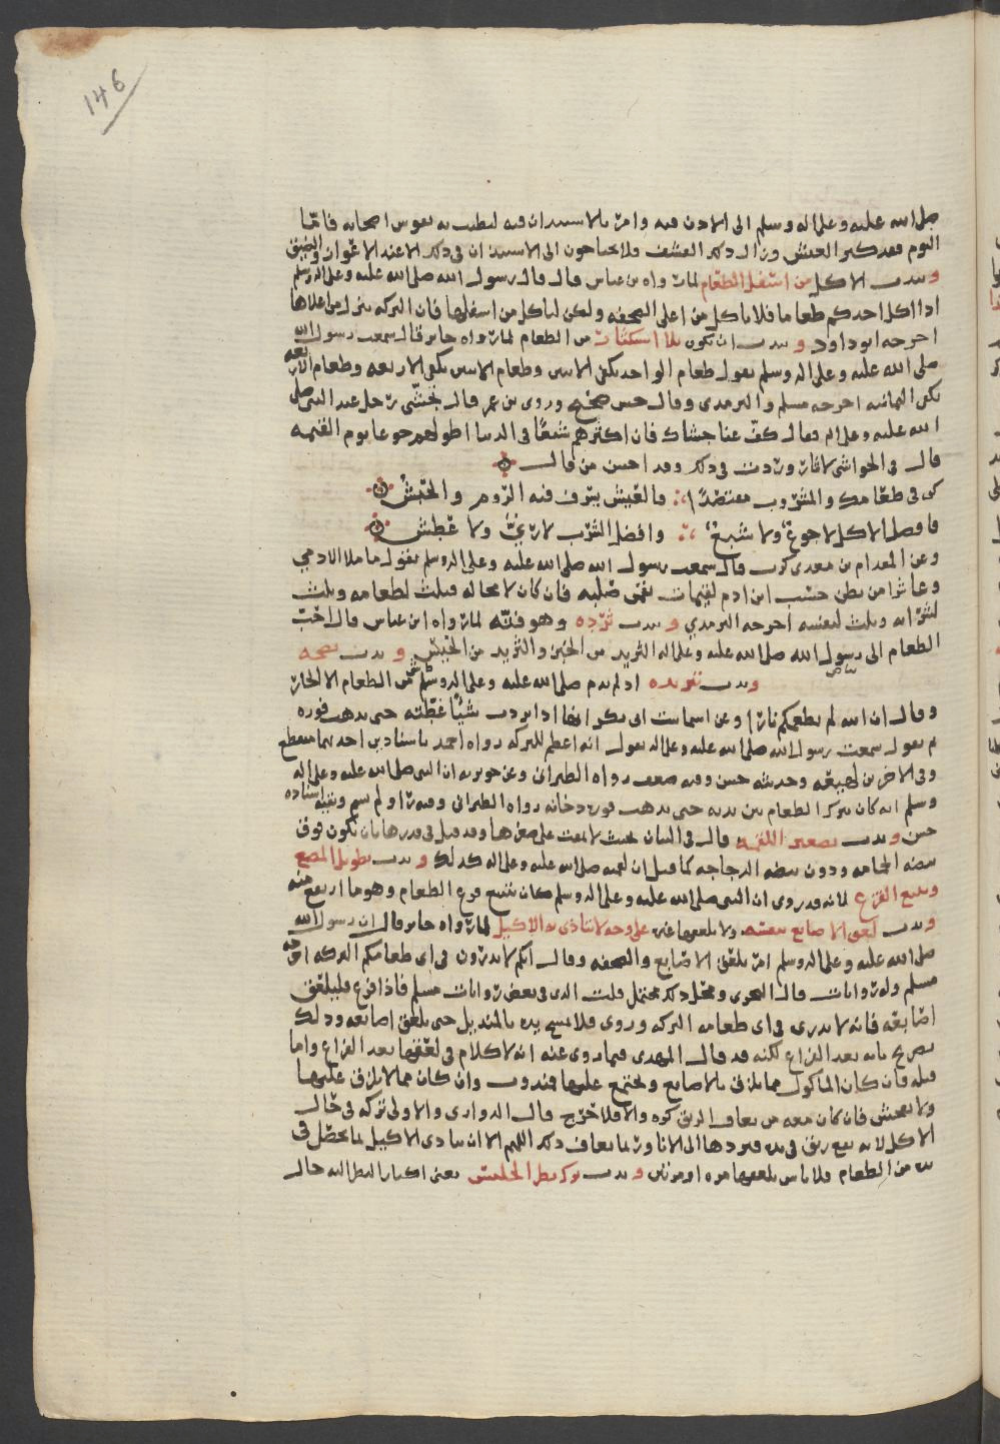 146
صلى الله عليه وعلى اله وسلم الى الاذن فيه وامر بالاستيذان فيه لتطيب به نفوس اصحابه فاما
اليوم فقد كثر العيش وزال ذلك القشف فلا يحتاجون الى الاستيذان في ذلك الا عند الاعوان والضيق
وندب الاكل من اسفل الطعام لما رواه بن عباس قال قال رسول الله صلى الله عليه وعلى اله وسلم
اذا اكل احدكم طعاما فلا ياكل من اعلى الصحفه ولكن لياكل من اسفلها فان البركه تنزل من اعلاها
اخرجه ابو داود وندب ان يكون بلا استكثار من الطعام لما رواه جابر قال سمعت رسول الله
صلى الله عليه وعلى اله وسلم يقول طعام الواحد يكفي الاثنين وطعام الاثنين يكفي الاربعه وطعام الاربعه
يكفي الثمانيه اخرجه مسلم والترمذي وقال حسن صحيح وروى بن عمر قال تجشى رجل عند النبي صلى
الله عليه وعلى اله فقال كف عنا جشاك فان اكثرهم شبعا في الدنيا اطولهم جوعا يوم القيمه
قال في الحواشي لاثار وردت في ذلك وقد احسن من قال
كن في طعامك والمشروب مقتصدا فالعيش يترف فيه الروم والحبش
فافضل الاكل لا جوع ولا شبع وافضل الشرب لا ري ولا عطش
وعن المقدام بن معدي كرب قال سمعت رسول الله صلى الله عليه وعلى اله وسلم يقول ما ملا الادمي
وعا شرا من بطن حسب ابن ادم لقيمات يقمن صلبه فان كان لا محاله فثلث لطعامه وثلث
لشرابه وثلث لنفسه اخرجه الترمذي وندب ثرده وهو فته لما رواه ابن عباس قال احب
الطعام الى رسول الله صلى الله عليه وعلى اله الثريد من الخبز والثريد من الحيس وندب
وندب تبريده اذ لم يذم صلى الله عليه وعلى اله وسلم من الطعام الا الحار
وقال ان الله لم يطعمكم نارا وعن اسما بنت ابي بكر انها اذا بردت شيئا غطته حتى يذهب فوره
ثم تقول سمعت رسول الله صلى الله عليه وعلى اله يقول انه اعظم للبركه رواه احمد باسنادين احدهما منقطع
وفي الاخر بن لهيعه وحديثه حسن وفيه ضعف رواه الطبراني وعن جويريه ان النبي صلى الله عليه وعلى اله
وسلم انه كان يترك الطعام بين يديه حتى يذهب فوره دخانه رواه الطبراني وفيه راو لم يسم وبقيه اسناده
حسن وندب تصغير اللقمه قال في البيان بحيث لا يمقت على صغرها وقد قيل في قدرها بان تكون فوق
بيضه الحمامه ودون بيضه الدجاجه كما قيل ان لقمه صلى الله عليه وعلى اله كذلك وندب تطويل المضغ
وتتبع القرع لما قد روي ان النبي صلى الله عليه وعلى اله وسلم كان يتتبع قرع الطعام وهو ما ارتفع منه
وندب لعق الاصابع بنفسه ولا يلعقها غيره على وجه لا يتاذى به الاكيل لما رواه جابر قال ان رسول الله
صلى الله عليه وعلى اله وسلم امر بلعق الاصابع والصحفه وقال انكم لا تدرون في اي طعامكم البركه اخرجه
مسلم وله روايات قال ومحل ذلك محتمل قلت الذي في بعض روايات مسلم فاذا فرغ فليلعق
اصابعه فانه لا يدري في اي طعامه البركه وروي فلا يمسح يده بالمنديل حتى يلعق اصابعه وذلك
تصريح بانه بعد الفراغ لكنه قد قال المهدي فيما روي عنه انه لا كلام في لعقها بعد الفراغ واما
قبله فان كان الماكول مما يلزق بالاصابع ويجتمع عليها فندب وان كان مما لا يلزق عليها
ولا يفحش فان كان معه من يعاف الريق كره والا فلا حرج قال الدواري والاولى تركه في حال
الاكل لانه يقع ريق في يده فيردها الى الانا وربما يعاف ذلك اللهم الا ان يتاذى الاكيل بما يحصل في
يده من الطعام فلا باس بلعقها مره او مرتين وندب ترك نظر الجليس يعني اكثار النظر اليه حال